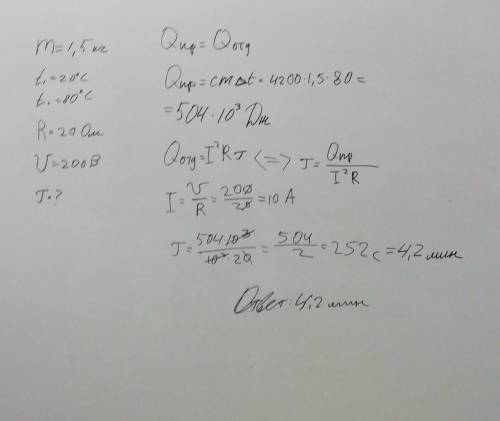 m=1,5 кг
t₁=20°C
t.=80°C
R=20 Ом
U=200 В
T=?
Qпр = Qотд
Qпр=cmΔt= 4200·1,5·80=
=504·10³ Дж
Qотд=I²RT <=> T= Qпр / I²R
I= U/R = 200/20 =10 A
T= 504·10³ / 10²·20 = 504/2 =252 с =4,2 мин
Ответ: 4,2 мин